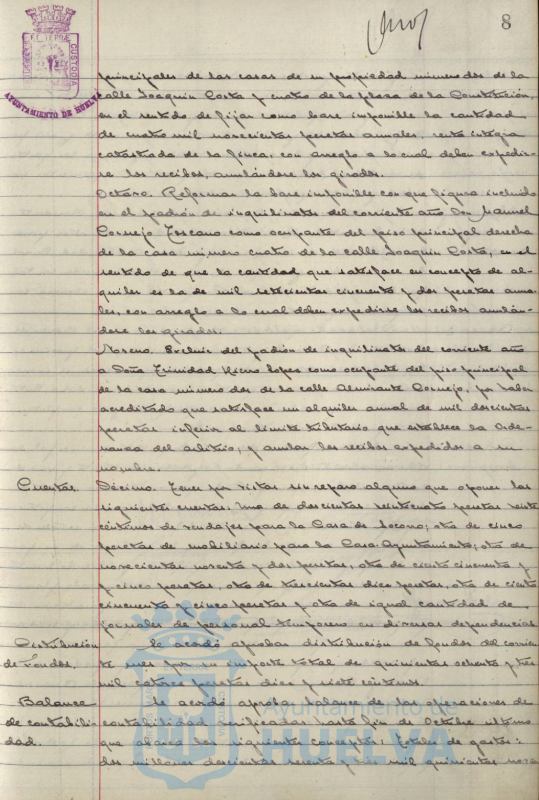 8
AYUNTAMIENTO DE HUELVA
CUSTODIA
principales de las casas de su propiedad número dos de la
calle Joaquín Costa y cuatro de la plaza de la Constitución,
en el sentido de fijar como base imponible la cantidad
de cuatro mil novecientas pesetas anuales, renta íntegra
catastrada de la finca, con arreglo a lo cual deben expedir-
se los recibos, anulándose los girados.
Octavo. Reformar la base imponible con que figura incluido
en el padrón de inquilinatos del corriente año Don Manuel
Cornejo Toscano como ocupante del piso principal derecha
de la casa número cuatro de la calle Joaquín Costa, en el
sentido de que la cantidad que satisface en concepto de al-
quiler es la de mil setecientas cincuenta y dos pesetas anua-
les, con arreglo a lo cual deben expedirse los recibos anulán-
dose los girados.
Noveno. Excluir del padrón de inquilinatos del corriente año
a Doña Trinidad López como ocupante del piso principal
de la casa número dos de la calle Almirante Cornejo, por haber
acreditado que satisface un alquiler anual de mil doscientas
pesetas inferior al límite tributario que establece la Orde-
nanza del arbitrio, y anular los recibos expedidos a su
nombre.
Cuentas. Décimo. Tener por vistas sin reparo alguno que oponer las
siguientes cuentas. Una de doscientas veinticuatro pesetas veinte
céntimos de vendajes para la Casa de Socorro; otra de cinco
pesetas de mobiliario para la Casa Ayuntamiento; otra de
novecientas noventa y dos pesetas, otra de ciento cincuenta y
y cinco pesetas, otra de trescientas diez pesetas, otra de ciento
cincuenta y cinco pesetas y otra de igual cantidad de
jornales de personal temporero en diversas dependencias
Distribución Se acordó aprobar distribución de fondos del corrien
de Fondos. te mes por su importe total de quinientas ochenta y tres
mil catorce pesetas diez y siete céntimos.
Balance Se acordó aprobar balance de las operaciones de
de contabili contabilidad verificadas hasta fin de Octubre último
dad. que abarca los siguientes conceptos: Totales de gastos:
dos millones doscientas sesenta y tres mil quinientas nove
Ayuntamiento de
HUELVA